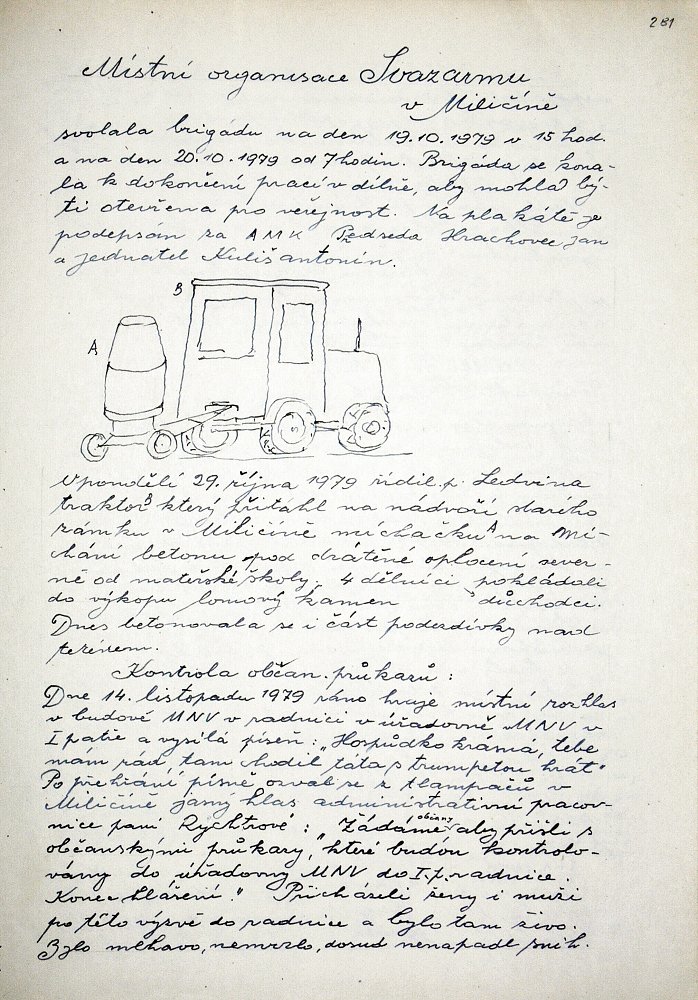 281
Místní organisace Svazarmu
v Miličíně
svolala brigádu na den 19.10.1979 v 15 hod.
a na den 20.10.1979 od 7 hodin. Brigáda se kona-
la k dokončení prací v dílně, aby mohla bý-
ti otevřena pro veřejnost. Na plakátě je
podepsán za AMK Předseda Hrachovec Jan
a jednatel Kuliš Antonín.
B
A
V pondělí 29. října 1979 řídil p. Ledvina
traktor B který přitáhl na nádvoří starého
zámku v Miličíně míchačku A na mí-
chání betonu pod drátěné oplocení sever-
ně od mateřské školy. 4 dělníci pokládali
do výkopu lomový kamen důchodci.
Dnes betonovala se i část podezdívky nad
terénem.
Kontrola občan. průkazů:
Dne 14. listopadu 1979 ráno hraje místní rozhlas
v budově MNV v radnici v úřadovně MNV v
I patře a vysílá píseň: "Hospůdko krásná, tebe
mám rád, tam chodil táta s trumpetou hrát"
Po přehrání písně ozval se z tlampačů v
Miličíně jasný hlas administrativní pracov-
nice paní Rychtrové: "Žádáme občany aby přišli s
občanskými průkazy, které budou kontrolo-
vány do úřadovny MNV do I.p. radnice.
Konec hlášení." Přicházeli ženy i muži
po této výzvě do radnice a bylo tam živo.
Bylo mlhavo, nemrzlo, dosud nenapadl sníh.